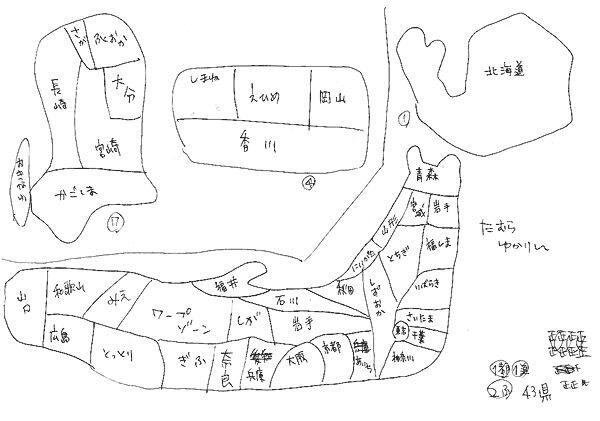 さが
ふくおか
長崎
大分
宮崎
かごしま
おきなわ
⑰
しまね
えひめ
岡山
香川
④
北海道
①
青森
岩手
宮城
山形
福しま
とちぎ
にいがた
いばらき
秋田
しずおか
さいたま
東京
千葉
神奈川
たむら
ゆかりん
山口
和歌山
みえ
ワープ
ゾーン
福井
石川
しが
岩手
広島
とっとり
ぎふ
奈良
兵庫
大阪
京都
あいち
1都 1道
2ふ 43県